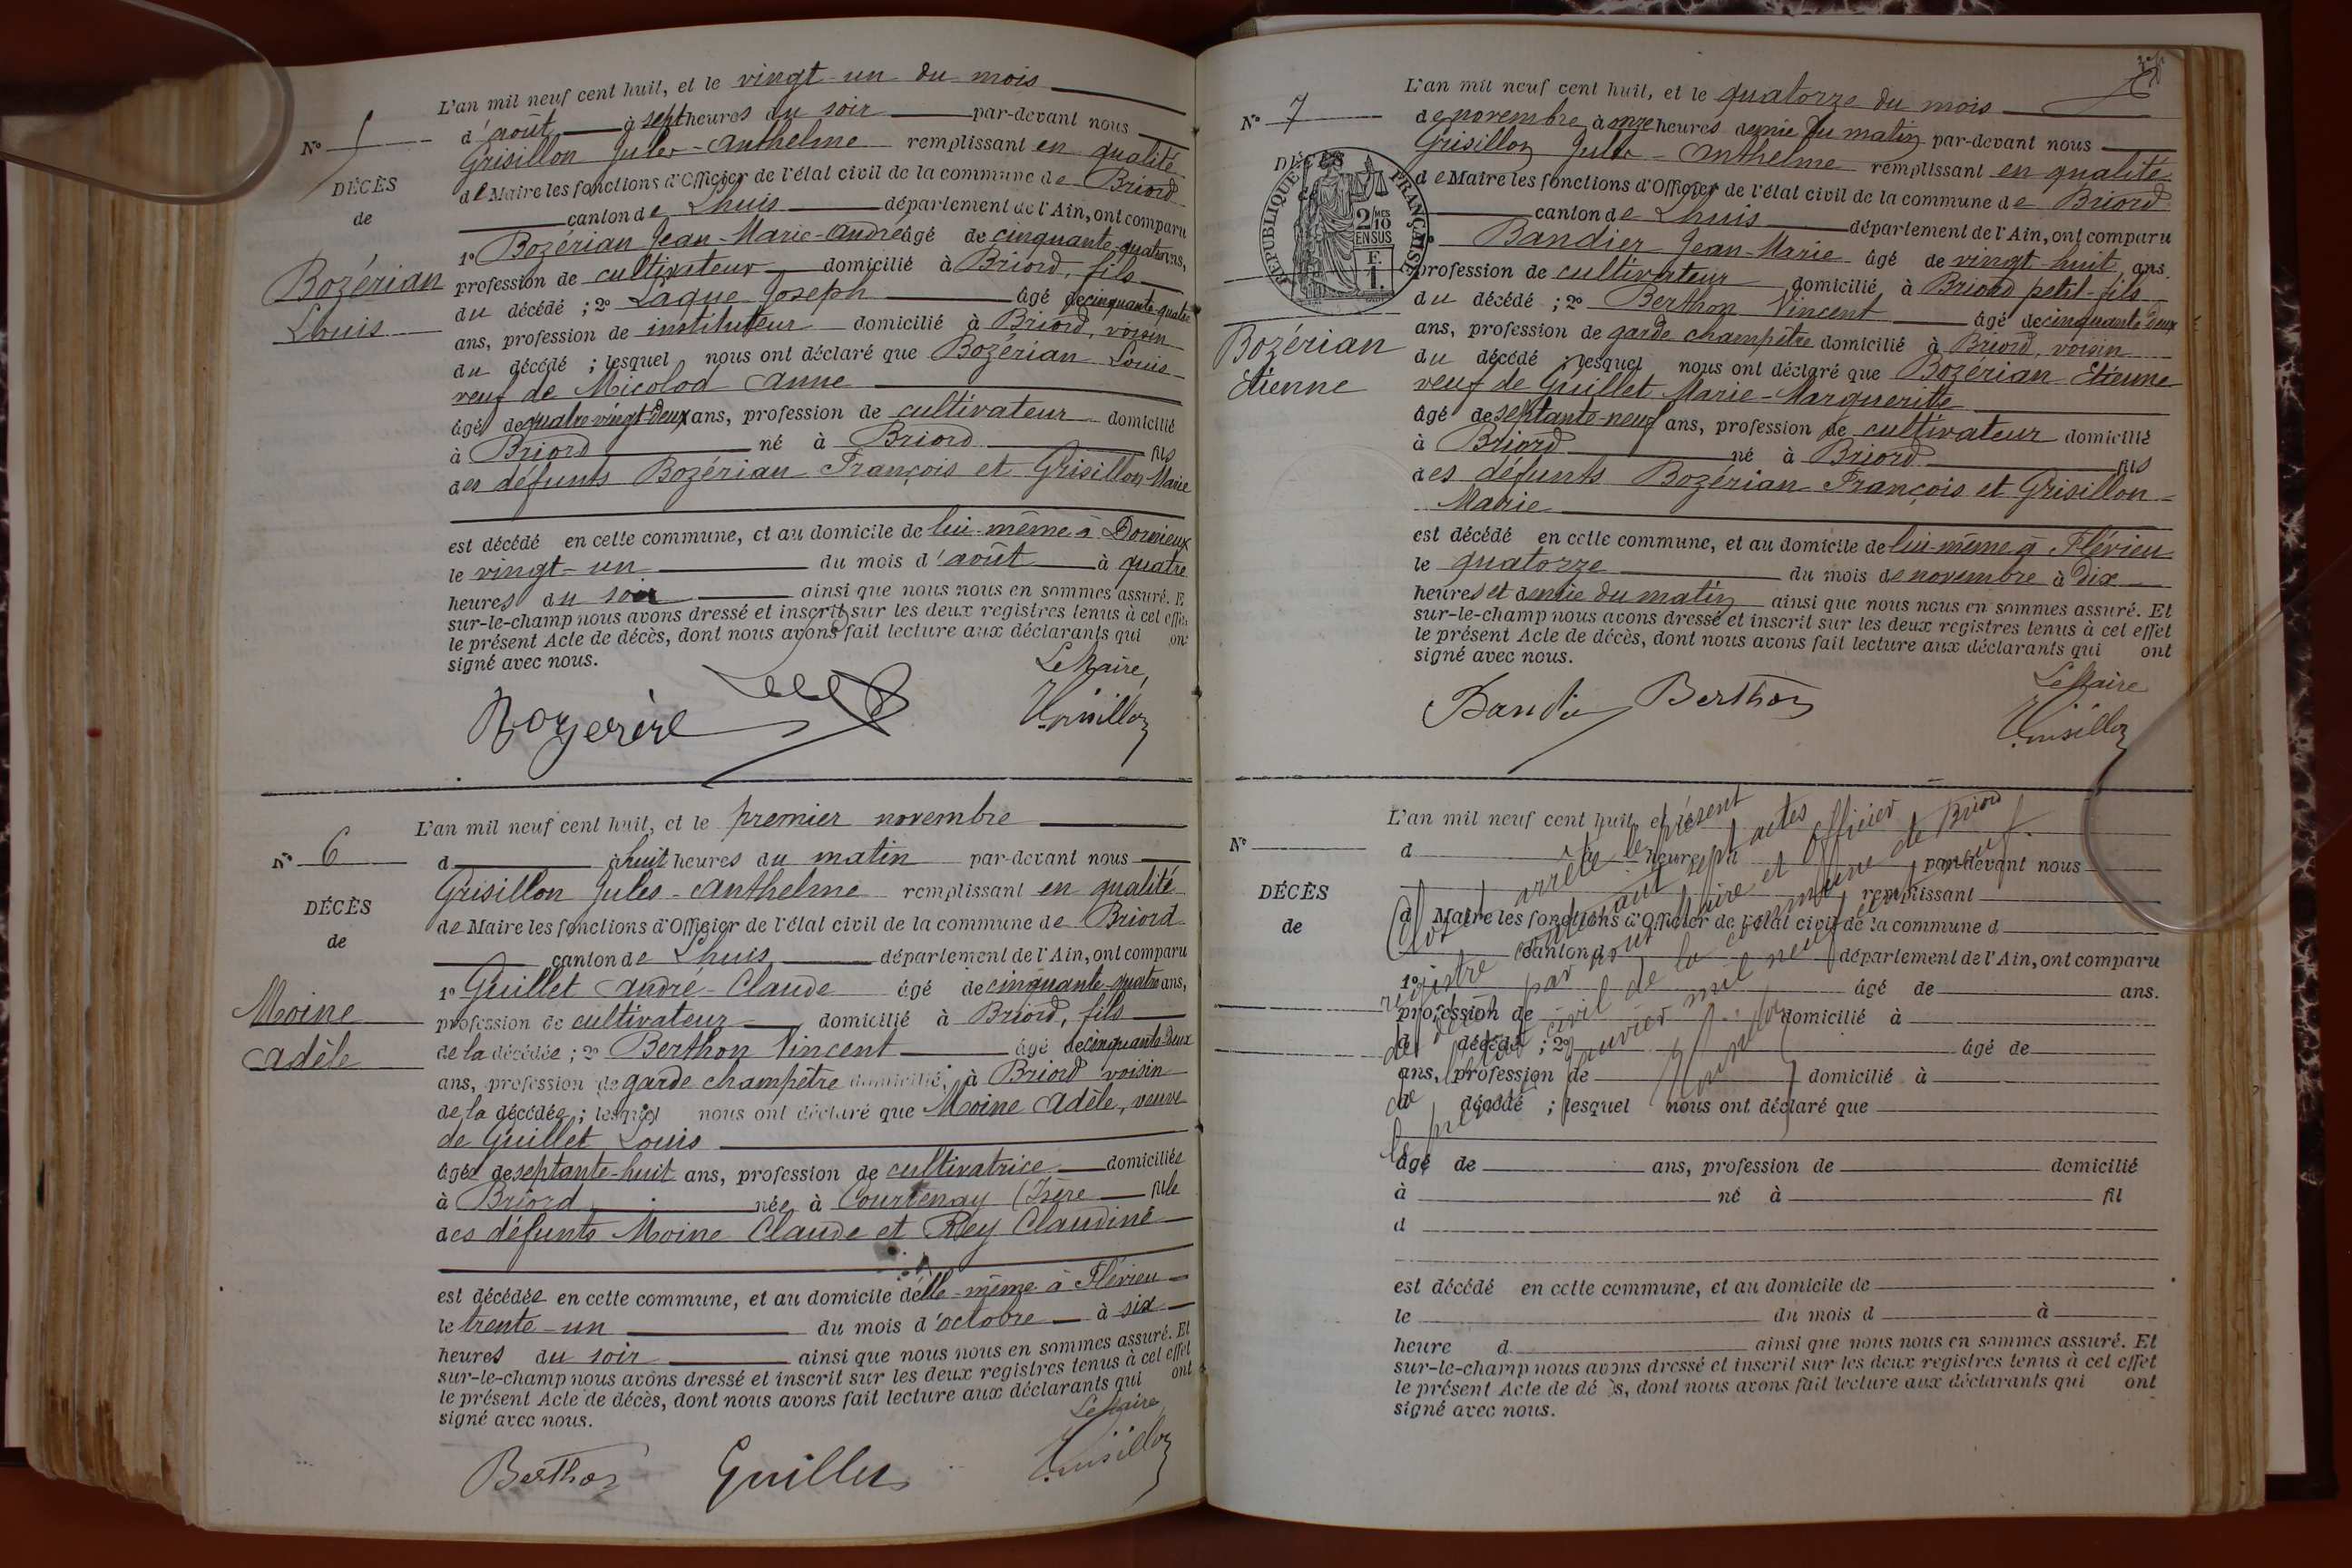 L'an mil neuf cent huit, et le vingt-un du mois
N° 5
d'août à sept heures du soir par-devant nous
Grisillon Jules-Anthelme remplissant en qualité
DÉCÈS
de Maire les fonctions d'Officier de l'état civil de la commune de Briord
de
canton de Lhuis département de l'Ain, ont comparu
1° Bozérian Jean-Marie-André âgé de cinquante-quatre ans,
Bozérian
profession de cultivateur domicilié à Briord, fils
Louis
du décédé ; 2° Laque Joseph âgé de cinquante-quatre
ans, profession de instituteur domicilié à Briord, voisin
du décédé ; lesquel nous ont déclaré que Bozérian Louis
veuf de Micolod Anne
âgé de quatre-vingt-deux ans, profession de cultivateur domicilié
à Briord né à Briord fils
des défunts Bozérian François et Grisillon Marie
est décédé en cette commune, et au domicile de lui-même à Dornieux
le vingt-un du mois d'août à quatre
heures du soir ainsi que nous nous en sommes assuré. E
sur-le-champ nous avons dressé et inscrit sur les deux registres tenus à cet effet
le présent Acte de décès, dont nous avons fait lecture aux déclarants qui ont
signé avec nous.
Le Maire,
Grisillon
L'an mil neuf cent huit, et le premier novembre
N° 6
d à huit heures du matin par-devant nous
Grisillon Jules-Anthelme remplissant en qualité
DÉCÈS
de Maire les fonctions d'Officier de l'état civil de la commune de Briord
de
canton de Lhuis département de l'Ain, ont comparu
1° Guillet André-Claude âgé de cinquante-quatre ans,
Moine
profession de cultivateur domicilié à Briord, fils
Adèle
de la décédée ; 2° Berthon Vincent âgé de cinquante-deux
ans, profession de garde champêtre domicilié à Briord voisin
de la décédée ; lesquel nous ont déclaré que Moine Adèle, veuve
de Guillet Louis
âgée de septante-huit ans, profession de cultivatrice domiciliée
à Briord née à Courtenay (Isère fille
des défunts Moine Claude et Rey Claudine
est décédée en cette commune, et au domicile d'elle-même à Flévieu
le trente-un du mois d'octobre à six
heures du soir ainsi que nous nous en sommes assuré. Et
sur-le-champ nous avons dressé et inscrit sur les deux registres tenus à cet effet
le présent Acte de décès, dont nous avons fait lecture aux déclarants qui ont
signé avec nous.
Le Maire
Berthon Guillet Grisillon
L'an mil neuf cent huit, et le quatorze du mois
N° 7
de novembre à onze heures demie du matin par-devant nous
Grisillon Jules-Anthelme remplissant en qualité
DÉCÈS
de Maire les fonctions d'Officier de l'état civil de la commune de Briord
RÉPUBLIQUE FRANÇAISE
2/10 MES
EN SUS
F.
1.
canton de Lhuis département de l'Ain, ont comparu
Bandier Jean-Marie âgé de vingt-huit ans.
profession de cultivateur domicilié à Briord petit-fils
du décédé ; 2° Berthon Vincent âgé de cinquante-deux
Bozérian
ans, profession de garde champêtre domicilié à Briord, voisin
Etienne
du décédé ; lesquel nous ont déclaré que Bozérian Etienne
veuf de Guillet Marie-Marguerite
âgé de septante-neuf ans, profession de cultivateur domicilié
à Briord né à Briord fils
des défunts Bozérian François et Grisillon
Marie
est décédé en cette commune, et au domicile de lui-même à Flévieu
le quatorze du mois de novembre à dix
heures et demie du matin ainsi que nous nous en sommes assuré. Et
sur-le-champ nous avons dressé et inscrit sur les deux registres tenus à cet effet
le présent Acte de décès, dont nous avons fait lecture aux déclarants qui ont
signé avec nous.
Le Maire
Bandier Berthon Grisillon
L'an mil neuf cent huit, et le
N°
d à heure par-devant nous
remplissant
DÉCÈS
d Maire les fonctions d'Officier de l'état civil de la commune d
de
canton d département de l'Ain, ont comparu
1° âgé de ans.
profession de domicilié à
d décédé ; 2° âgé de
ans, profession de domicilié à
d décédé ; lesquel nous ont déclaré que
âgé de ans, profession de domicilié
à né à fil
d
est décédé en cette commune, et au domicile de
le du mois d à
heure d ainsi que nous nous en sommes assuré. Et
sur-le-champ nous avons dressé et inscrit sur les deux registres tenus à cet effet
le présent Acte de décès, dont nous avons fait lecture aux déclarants qui ont
signé avec nous.
Clos et arrêté le présent
registre contenant sept actes
de décès par nous Maire et officier
de l'état civil de la commune de Briord
le premier janvier mil neuf cent neuf.